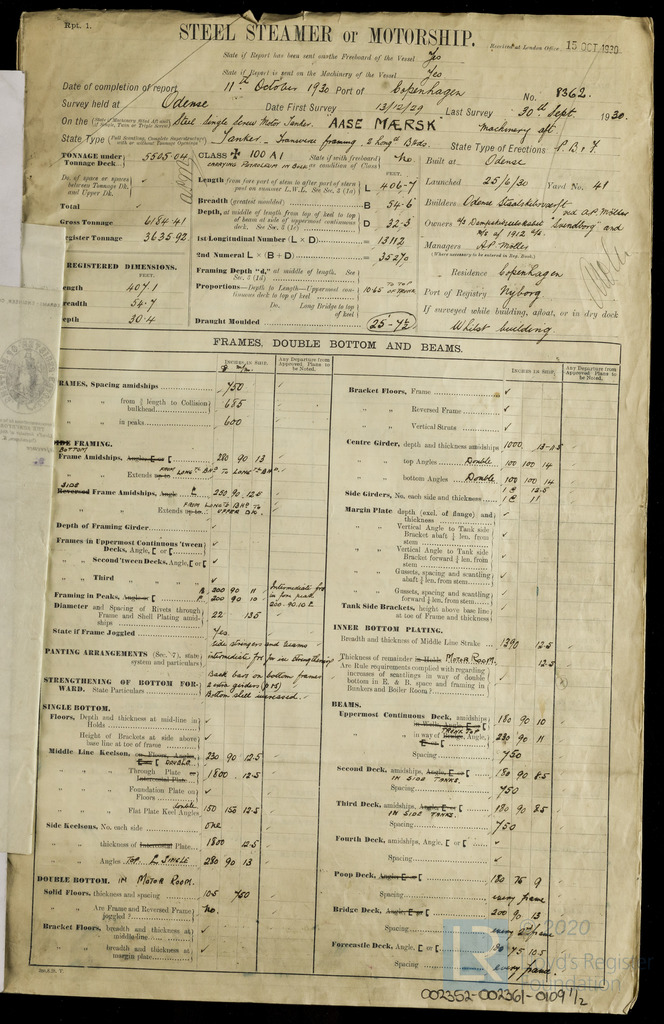 Rpt. 1.
STEEL STEAMER OR MOTORSHIP.
Received at London Office 15 OCT 1930
State if Report has been sent on the Freeboard of the Vessel Yes
State if Report is sent on the Machinery of the Vessel Yes
Date of completion of report 11th October 1930 Port of Copenhagen No. 8362.
Survey held at Odense Date First Survey 13/12/29 Last Survey 30th Sept. 1930.
On the Steel Single Screw Motor Tanker. AASE MÆRSK Machinery aft
State Type Tanker - Transverse framing. 2 longl Bhds. State Type of Erections P. B & F
TONNAGE under Tonnage Deck 5505.04
Do. of space or spaces between Tonnage Dk. and Upper Dk.
Total
Gross Tonnage 6184.41
Register Tonnage 3635.92
REGISTERED DIMENSIONS.
FEET.
Length 407.1
Breadth 54.7
Depth 30.4
CLASS ✠ 100 A1 State if with freeboard as condition of Class No.
CARRYING PETROLEUM IN BULK
FEET.
Length from fore part of stem to after part of stern post on summer L.W.L. See Sec. 3 (1c) L 406.7
Breadth (greatest moulded) B 54.6
Depth, at middle of length from top of keel to top of beam at side of uppermost continuous deck. See Sec. 3 (1e) D 32.3
1st Longitudinal Number (L × D) = 13112
2nd Numeral L × (B + D) = 35270
Framing Depth "d," at middle of length. See Sec. 3 (1d)
Proportions—Depth to Length—Uppermost continuous deck to top of keel 10.65 TO TOP OF TRUNK
Do. Long Bridge to top of keel
Draught Moulded 25'-7½
Built at Odense
Launched 25/6/30 Yard No. 41
Builders Odense Staalskibsværft ved A.P. Möller
Owners A/S Dampskibsselskabet Svendborg and D/S of 1912 A/S.
Managers A.P. Möller
(Where necessary to be entered in Reg. Book.)
Residence Copenhagen
Port of Registry Nyborg
If surveyed while building, afloat, or in dry dock
Whilst building
FRAMES, DOUBLE BOTTOM AND BEAMS.
INCHES IN SHIP.
Any Departure from Approved Plans to be Noted.
FRAMES, Spacing amidships 750
" " from ⅗ length to Collision bulkhead 685
" " in peaks 600
SIDE FRAMING.
BOTTOM
Frame Amidships, Angle, E or [ 280 90 13
" " Extends up to FROM LONGL BHD TO LONGL BHD.
SIDE
Reversed Frame Amidships, Angle 250 90 12.5
" " Extends up to FROM LONGL BHD TO UPPER DK.
Depth of Framing Girder
Frames in Uppermost Continuous 'tween Decks, Angle, [ or [
" Second 'tween Decks, Angle, [ or [
" Third " " " "
Framing in Peaks, Angle or [ A 200 90 11
F. 200 90 10
Intermediate frs in fore peak 200.90.10.5
Diameter and Spacing of Rivets through Frame and Shell Plating amidships 22 135
State if Frame Joggled Yes
PANTING ARRANGEMENTS (Sec. 7), state system and particulars Side stringers and beams intermediate frs for ice strengthening
STRENGTHENING OF BOTTOM FORWARD. State Particulars Back bars on bottom frames 2 extra girders Bottom shell increased.
SINGLE BOTTOM.
Floors, Depth and thickness at mid-line in Holds
Height of Brackets at side above base line at toe of frame
Middle Line Keelson, on Floors, Angles, E or [ DOUBLE 230 90 12.5
" " Through Plate or Intercostal Plate 1800 12.5
" " Foundation Plate on Floors
" " Flat Plate Keel Angles double 150 150 12.5
Side Keelsons, No. each side one
" " thickness of Intercostal Plate 1800 12.5
" " Angles TOP L SINGLE 280 90 13
DOUBLE BOTTOM. IN MOTOR ROOM.
Solid Floors, thickness and spacing 10.5 750
" " Are Frame and Reversed Frame joggled? No.
Bracket Floors, breadth and thickness at middle line
" " breadth and thickness at margin plate
INCHES IN SHIP.
Any Departure from Approved Plans to be Noted.
Bracket Floors, Frame
" " Reversed Frame
" " Vertical Struts
Centre Girder, depth and thickness amidships 1000 13-11.5
" " top Angles Double 100 100 14
" " bottom Angles Double 100 100 14
Side Girders, No. each side and thickness 1 @ 12.5
1 @ 11
Margin Plate depth (excl. of flange) and thickness
" " Vertical Angle to Tank side Bracket abaft ¼ len. from stem
" " Vertical Angle to Tank side Bracket forward ¼ len. from stem
" " Gussets, spacing and scantling abaft ¼ len. from stem
" " Gussets, spacing and scantling forward ¼ len. from stem
Tank Side Brackets, height above base line at toe of Frame and thickness
INNER BOTTOM PLATING.
Breadth and thickness of Middle Line Strake 1390 12.5
Thickness of remainder in Holds MOTOR ROOM. 12.5
Are Rule requirements complied with regarding increases of scantlings in way of double bottom in E. & B. space and framing in Bunkers and Boiler Room?
BEAMS.
Uppermost Continuous Deck, amidships in Wells, Angle, E or [ 180 90 10
TRUNK TOP
" " in way of Bridge, Angle, E or [ 230 90 11
Spacing 750
Second Deck, amidships, Angle, E or [ 180 90 8.5
IN SIDE TANKS.
Spacing 750
Third Deck, amidships, Angle, E or [ 180 90 8.5
IN SIDE TANKS.
Spacing 750
Fourth Deck, amidships, Angle, [ or [
Spacing
Poop Deck, Angle, E or [ 180 75 9
Spacing every frame
Bridge Deck, Angle, E or [ 200 90 13
Spacing every 2nd frame
Forecastle Deck, Angle, [ or [ 180 75 10.5
Spacing every frame.
© 2020
Lloyd's Register
Foundation
002352-002361-0109 1/2